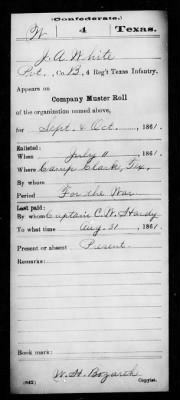 (Confederate.)
W 4 Texas.
J. A. White
Pvt., Co. B, 4 Reg't Texas Infantry.
Appears on
Company Muster Roll
of the organization named above,
for Sept. & Oct., 1861.
Enlisted:
When July 11, 1861.
Where Camp Clark, Tex.
By whom
Period For the War
Last paid:
By whom Captain C. W. Hardy
To what time Aug. 31, 1861.
Present or absent Present
Remarks:
Book mark:
W. H. Bozarth
(642) Copyist.